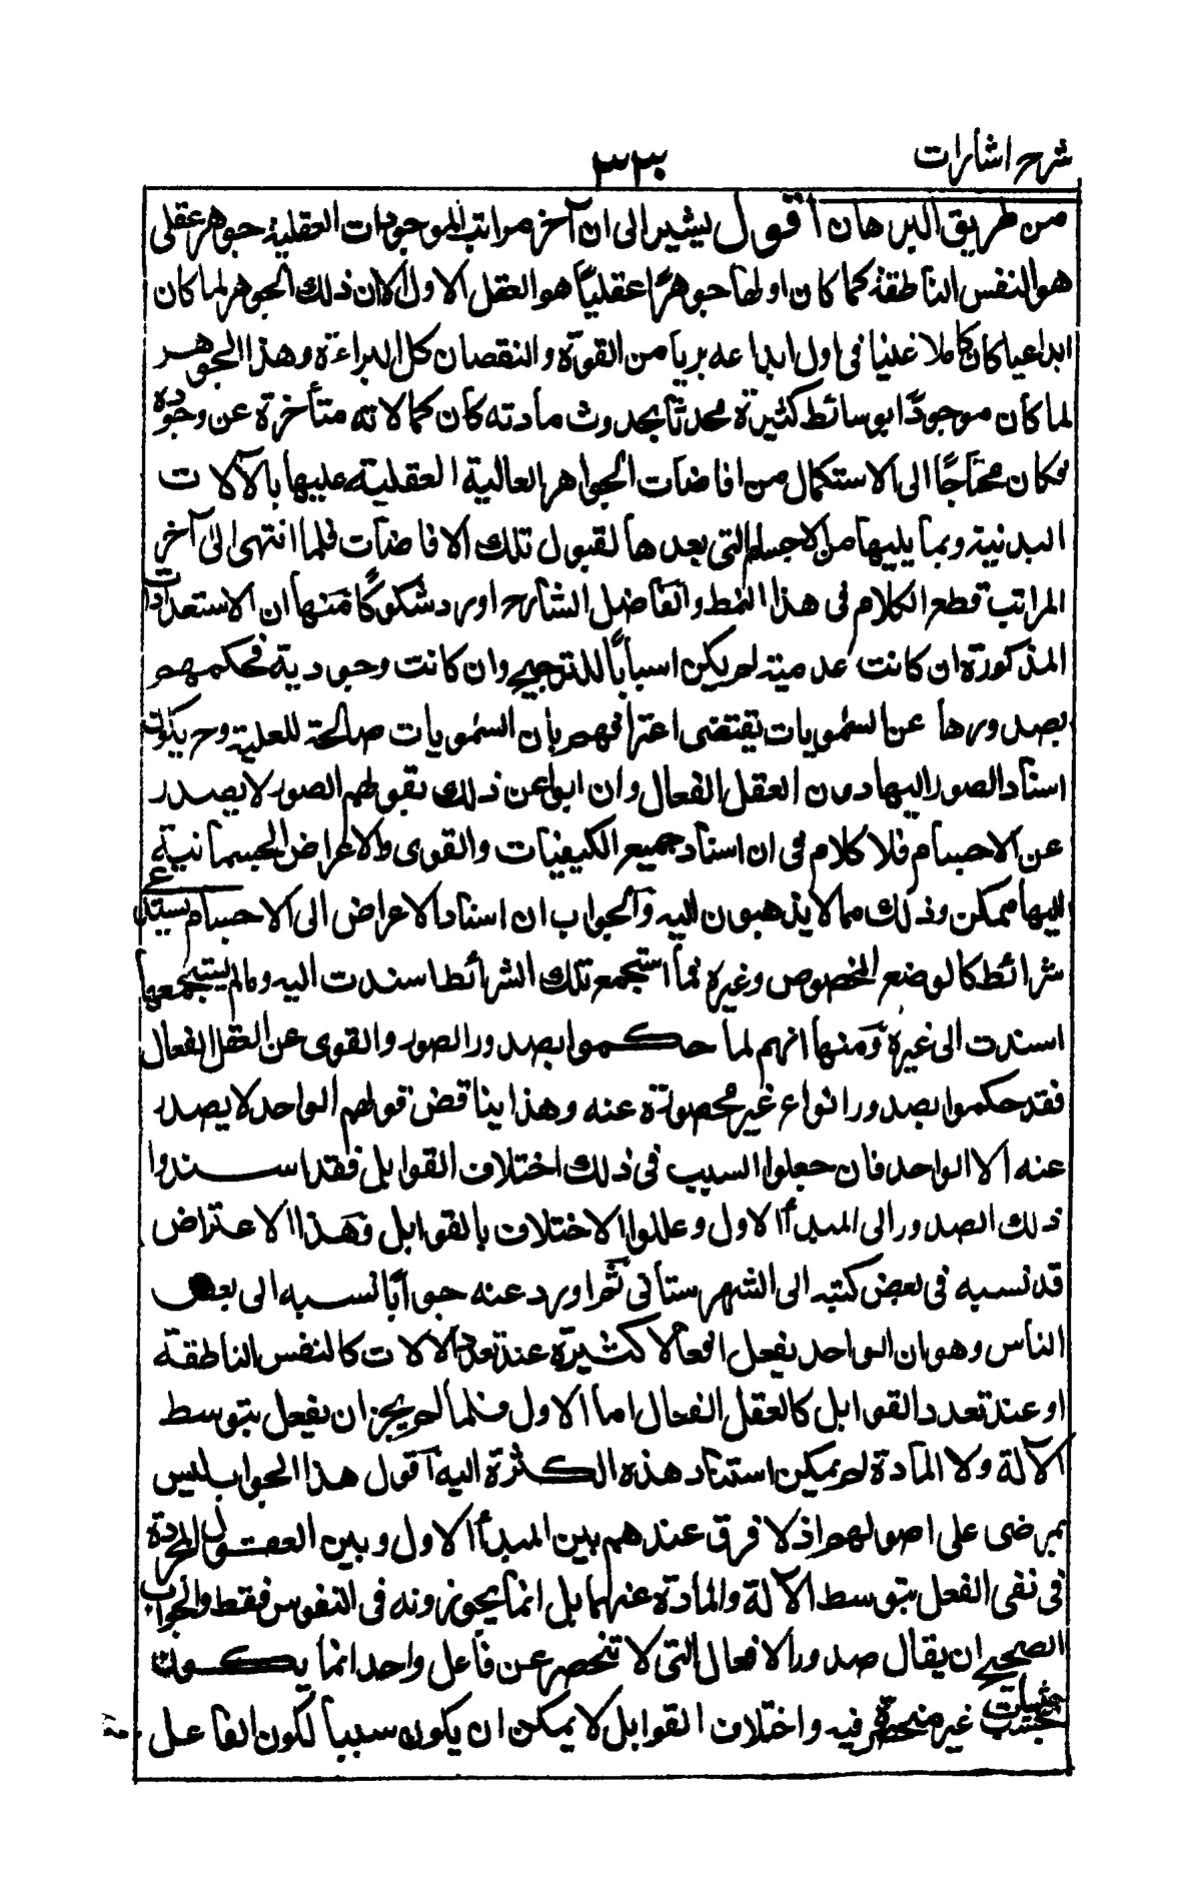 شرح اشارات
٣٣٠
من طريق البرهان اقول يشير الى ان آخر مراتب الموجودات العقلية جوهر عقلى
هو النفس الناطقة كما كان اولها جوهرًا عقليًا هو العقل الاول الا ان ذلك الجوهر لما كان
ابداعيا كان كاملا غنيا فى اول ابداعه بريا من القوة والنقصان كل البراءة وهذا الجوهر
لما كان موجودًا بوسائط كثيرة محدثا بحدوث مادته كان كمالاته متأخرة عن وجوده
فكان محتاجًا الى الاستكمال من افاضات الجواهر العالية العقلية عليها بالآلات
البدنية وبما يليها من الاجسام التى يعدها لقبول تلك الافاضات فلما انتهى الى آخر
المراتب قطع الكلام فى هذا النمط والفاضل الشارح اورد شكوكًا منها ان الاستعدادات
المذكورة ان كانت عدمية لم يكن اسبابًا للترجيح وان كانت وجودية فحكمهم
بصدورها عن السمويات يقتضى اعترافهم بان السمويات صالحة للعلية وح يمكن
اسناد الصور اليها دون العقل الفعال وان ابوا عن ذلك بقولهم الصور لا يصدر
عن الاجسام فلا كلام فى ان اسناد جميع الكيفيات والقوى والاعراض الجسمانية
اليها ممكن وذلك مما لا يذهبون اليه والجواب ان اسناد الاعراض الى الاجسام يستدعى
شرائط كالوضع المخصوص وغيره فما استجمع تلك الشرائط اسندت اليه وما لم يستجمعها
اسندت الى غيره ومنها انهم لما حكموا بصدور الصور والقوى عن العقل الفعال
فقد حكموا بصدور انواع غير محصورة عنه وهذا يناقض قولهم الواحد لا يصدر
عنه الا الواحد فان جعلوا السبب فى ذلك اختلاف القوابل فقد اسندوا
ذلك الصدور الى المبدأ الاول وعللوا الاختلاف بالقوابل وهذا الاعتراض
قد نسبه فى بعض كتبه الى الشهرستانى ثم اورد عنه جوابًا نسبه الى بعض
الناس وهو ان الواحد يفعل افعالا كثيرة عند تعدد الآلات كالنفس الناطقة
او عند تعدد القوابل كالعقل الفعال اما الاول فلما لم يجز ان يفعل بتوسط
الآلة ولا المادة لم يمكن استناد هذه الكثرة اليه اقول هذا الجواب ليس
بمرضى على اصولهم اذ لا فرق عندهم بين المبدأ الاول وبين العقول المجردة
فى نفى الفعل بتوسط الآلة والمادة عنهما بل انما يجوزونه فى النفوس فقط والجواب
الصحيح ان يقال صدور الافعال التى لا تنحصر عن فاعل واحد انما يكون
بحسب حيثيات غير منحصرة فيه واختلاف القوابل لا يمكن ان يكون سببا لكون الفاعل